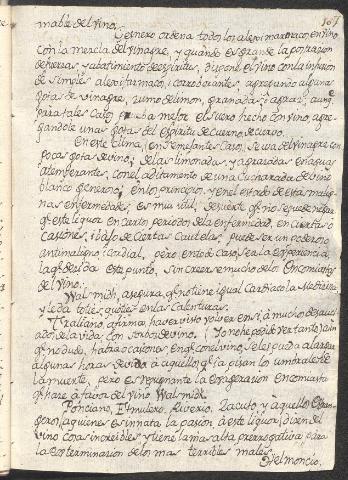 107
mable del vino.
Gesnero ordena todo los alexi marmaco, en vino
con la mercla del vinagre, y quando es grande la postracion
de fuerzas, y abatimiento de espiritus, dispone el vino con la infusion
de simples alexifarmaco, i corroborantes, agregando alguna
gota de vinagre, zumo de limon, granada, i agraz, aunq.e
para tales casos prueba mejor el suero hecho con vino, agre
gandole unas gotas del espiritu de cuerno de ciervo.
En este clima, i en semejantes casos, se usa del vinagre con
pocas gotas de vino; de las limonadas, y agraziadas en aguas
atemperantes, con el aditamento de una cucharada de vino
blanco generoso; en los principios, y en el estado de estas malig-
nas enfermedades, es mui util; de suerte q.e no se puede negar
q.e este liquor en cierto periodo de la enfermedad, en ciertas o
casiones, i bajo de ciertas cautelas, puede ser un poderoso
antimaligno, i cordial, pero en todo caso, sea la experiencia
la q.e decida este punto, sin creer mucho de los Encomiastas
del vino.
Walsmidh, asegura q.e no tiene igual Cardiaco la Medicina
y le da toties quoties en las Calenturas.
Traliano afirma haver visto volver en si, à muchos desauci-
ados de la vida, con sorbos de vino. i Yo ne he pedido ver tanto, aun
q.e no dudo, habra ocasiones, en q.e con el vino, se les pueda alargar
algunas horas de vida à aquellos, q.e ya pisan los umbrales de
la muerte, pero es repugnante la exageracion encomiasta
q.e hace à favor del vino Walsmidh.
Ponciano, Etmulero, Riverio, Zacuto, y aquellos Estran-
geros (a quienes es innata la pasion à este liquor) dizen del
vino cosas increibles, y tiene la mas alta prerrogativa para
la exterminacion de los mas terribles males.
Helmoncio.